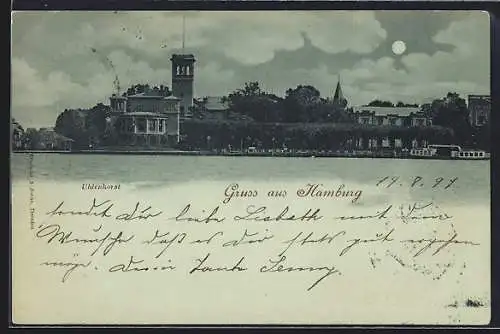 Uhlenhorst
Gruss aus Hamburg
19. 8. 97
sendet Dir liebe Lisbeth mit dem
Wunsche daß es Dir stets gut ergehen
möge. Deine Tante Jenny